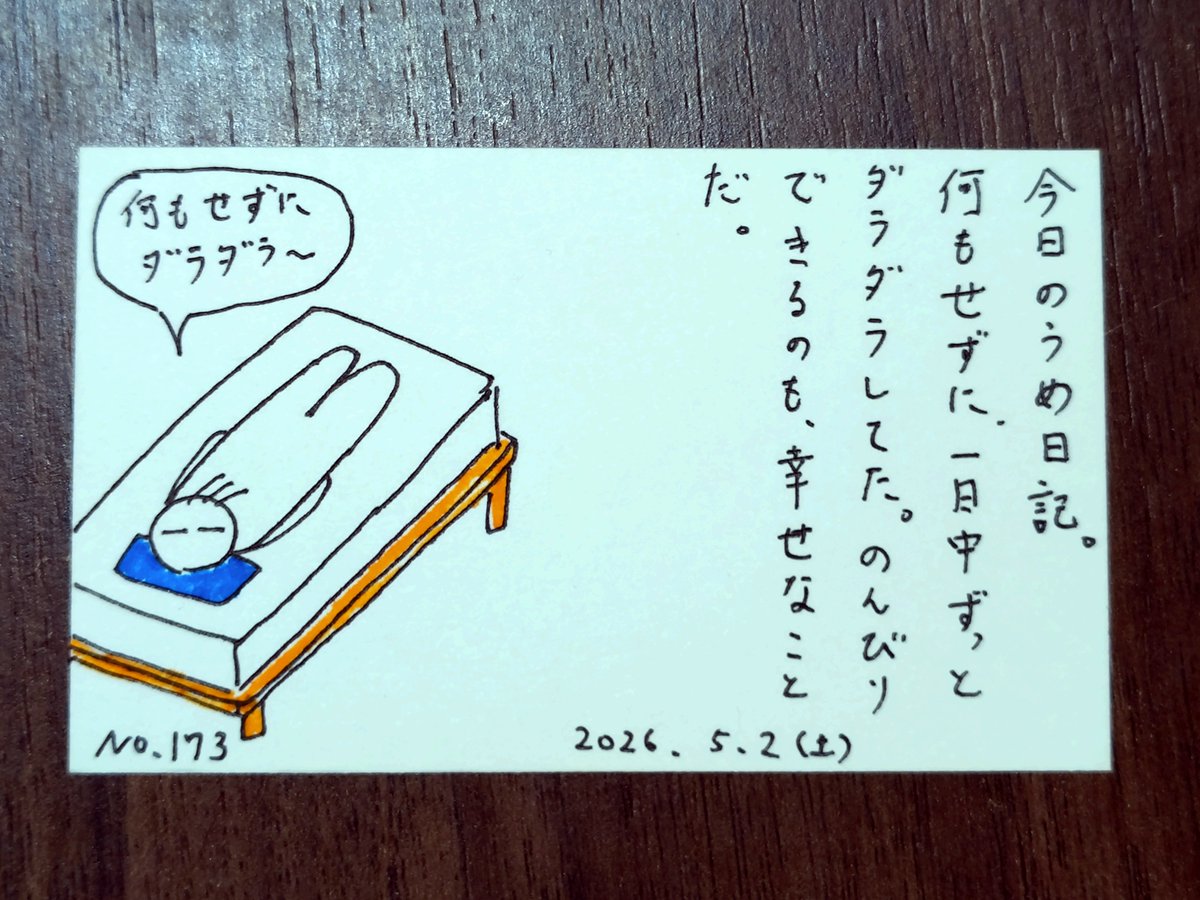 今日のうめ日記。
何もせずに、一日中ずっと
ダラダラしてた。のんびり
できるのも、幸せなこと
だ。
何もせずに
ダラダラ〜
No.173
2026.5.2(土)